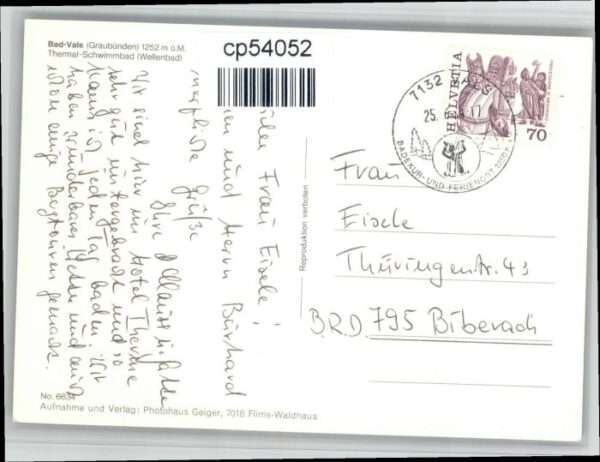 Bad-Vals (Graubünden) 1252 m ü.M.
Thermal-Schwimmbad (Wellenbad)
cp54052
Frau Eisele!
und Herrn Burkhard
Wir sind hier im Hotel Therme
sehr gut untergebracht und so
kann ich jeden Tag baden. Wir
haben wunderbares Wetter und auch
schon einige Bergtouren gemacht.
Grüße
Ihre
Reproduktion verboten
7132 VALS
25.
BADEKUR- UND FERIENORT
HELVETIA
70
Frau
Eisele
Thüringenstr. 43
BRD 795 Biberach
No. 6634
Aufnahme und Verlag: Photohaus Geiger, 7018 Flims-Waldhaus